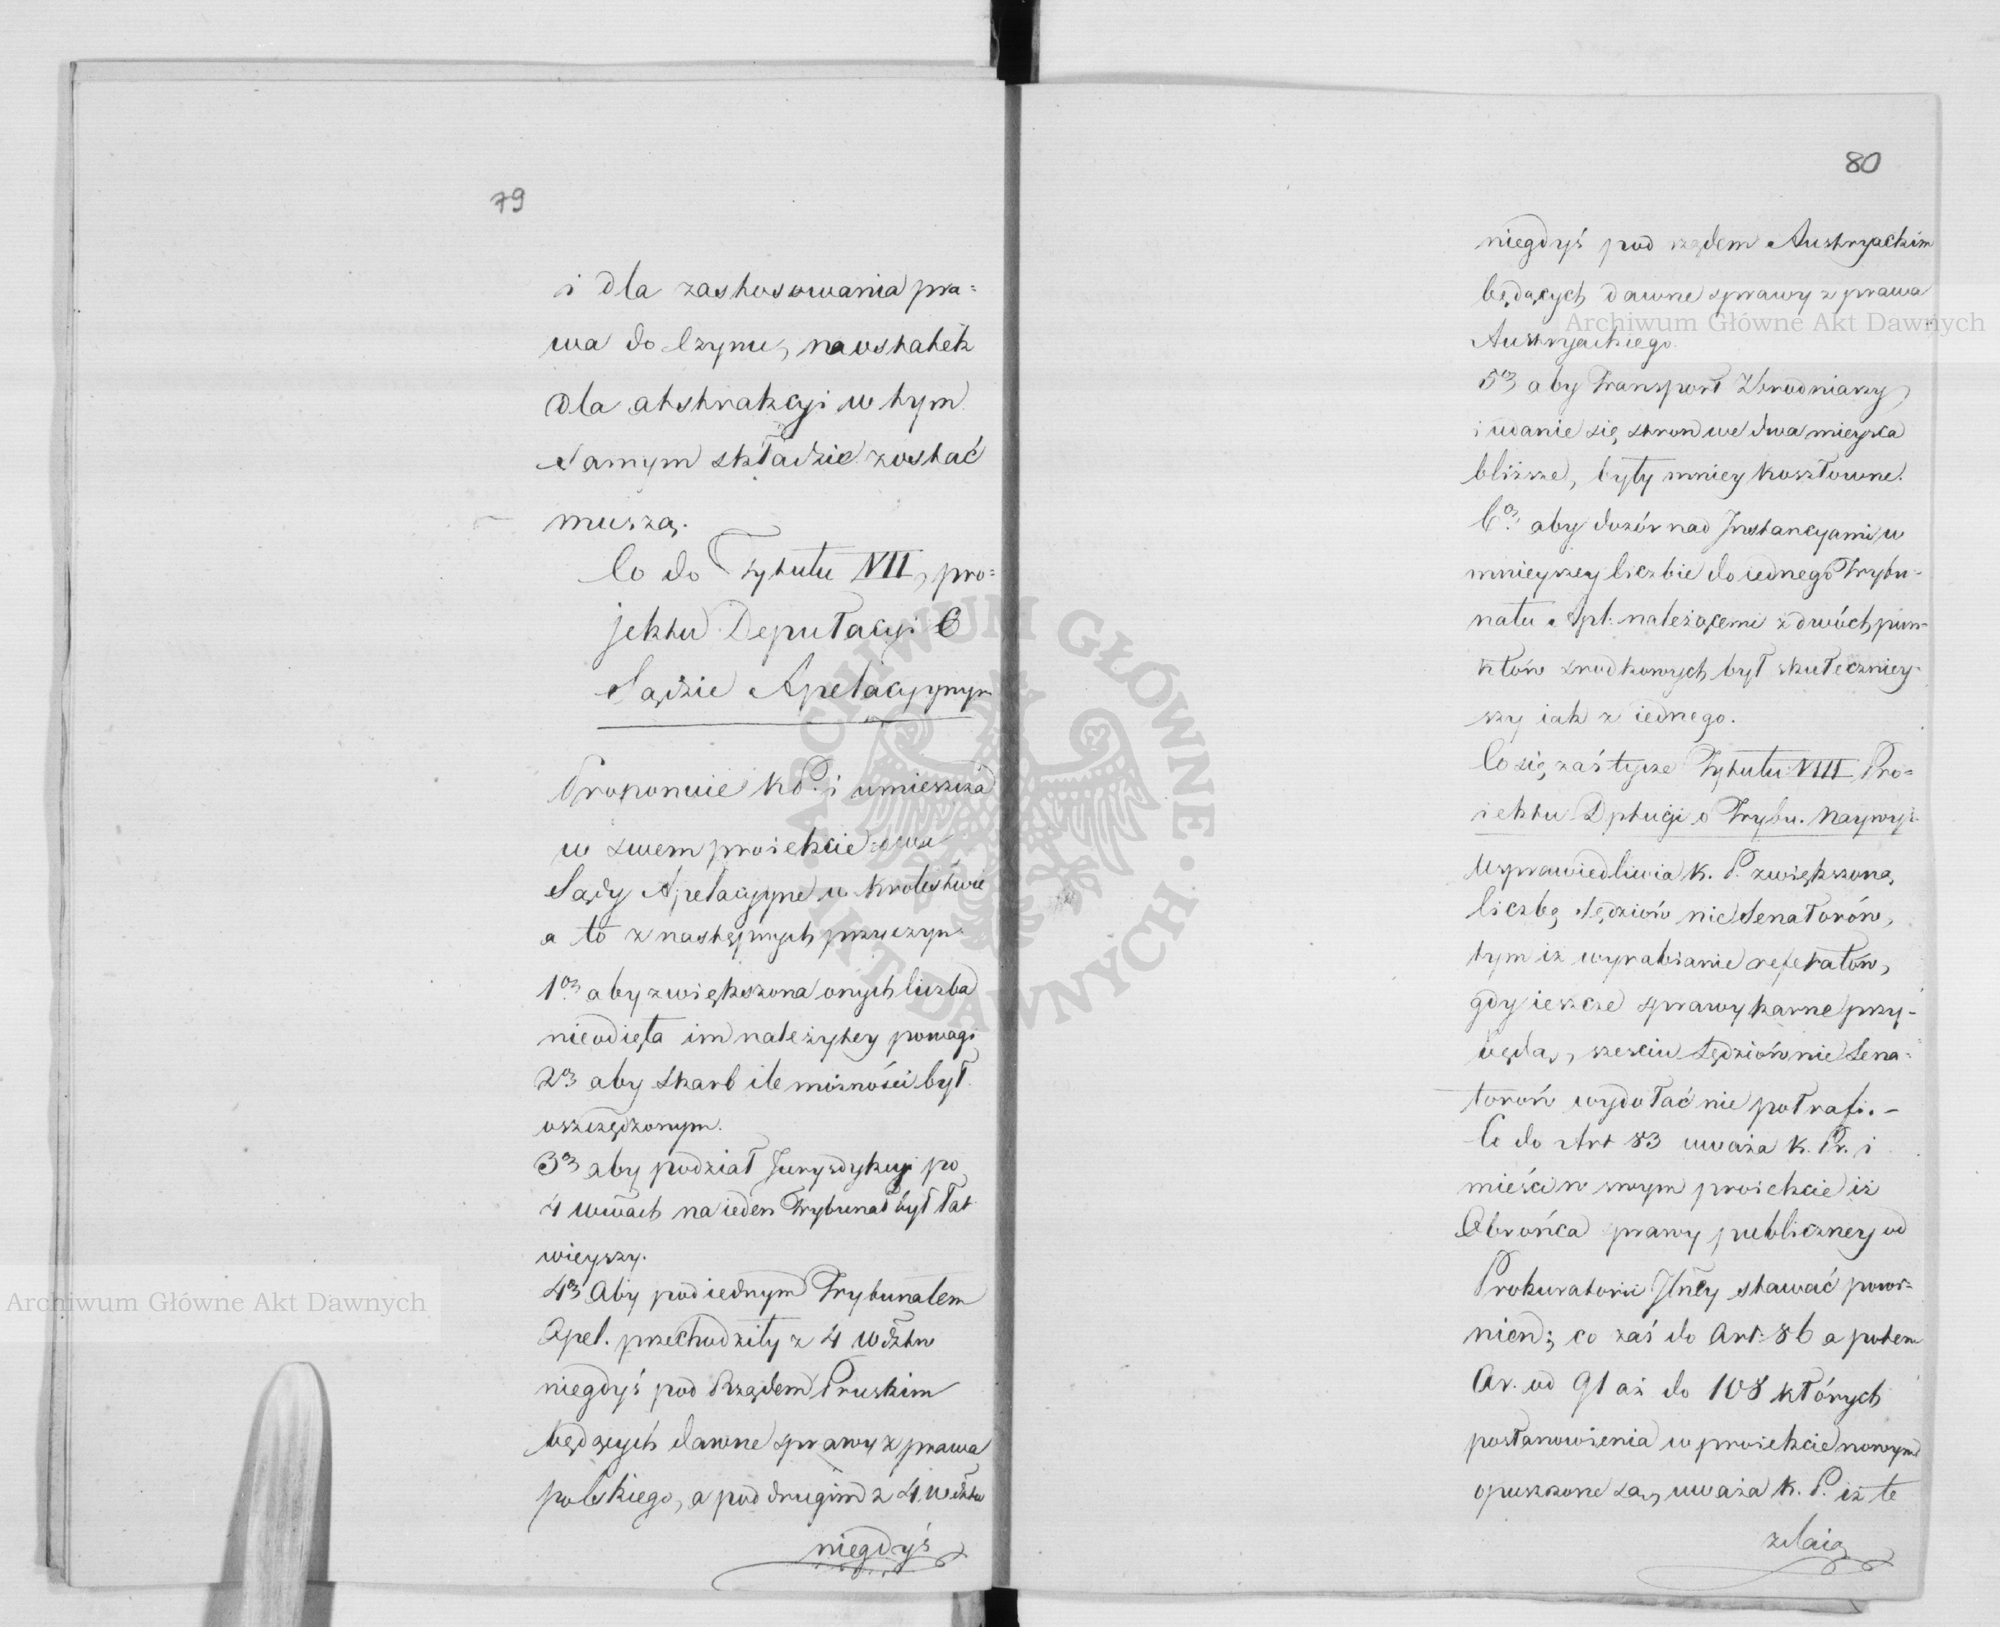 79
i dla zastosowania pra=
wa do Czynu, na ostatek
dla abstrakcyi w tym
samym składzie zostać
muszą.
Co do Tytułu VII, pro=
jektu Deputacyi O
Sądzie Apelacyjnym
Proponuie K P. i umieszcza
w swem proiekcie dwa
Sądy Apelacyjne w Krolestwie
a to z następnych przyczyn
1o aby zwiększona onych liczba
nieodięła im należytey powagi
2o aby skarb ile możności był
oszczędzonym.
3o aby podział Jurysdykcyi po
4 wwach na ieden Trybunał był łat
wieyszy.
4o Aby pod iednym Trybunałem
Apel. przechodziły z 4 Wdztw
niegdyś pod Rządem Pruskim
będących dawne sprawy z prawa
polskiego, a pod drugim z 4 Wdztw
niegdyś
80
niegdyś pod rządem Austryackim
będących dawne sprawy z prawa
Austryackiego.
5o aby Transport Zbrodniarzy
i udanie się stron we dwa mieysca
bliższe, były mniey kosztowne.
6o aby dozór nad Instancyami w
mnieyszey liczbie do iednego Trybu-
nału Apl. należącemi z dwóch pun-
któw srodkowych był skuteczniey-
szy iak z iednego.
Co się zaś tycze Tytułu VIII Pro=
iektu Dptacyi o Trybu. Naywyż.
Usprawiedliwia K. P. zwiększoną
liczbę Sędziów nie Senatorów,
tym iż wyrabianie referatów,
gdy ieszcze sprawy karne przy-
będą, sześciu Sędziów nie Sena-
torów wydołać nie potrafi. -
Co do Art 83 uważa K. Pr. i
mieści w swym proiekcie iż
Obrońca sprawy publiczney od
Prokuratorii Jlney stawać powi-
nien; co zaś do Art: 86 a potem
Ar. od 91 aż do 108 których
postanowienia w proiekcie nowym
opuszczone są, uważa K. P. iż te
zdaią
Archiwum Główne Akt Dawnych
Archiwum Główne Akt Dawnych
ARCHIWUM GŁÓWNE AKT DAWNYCH